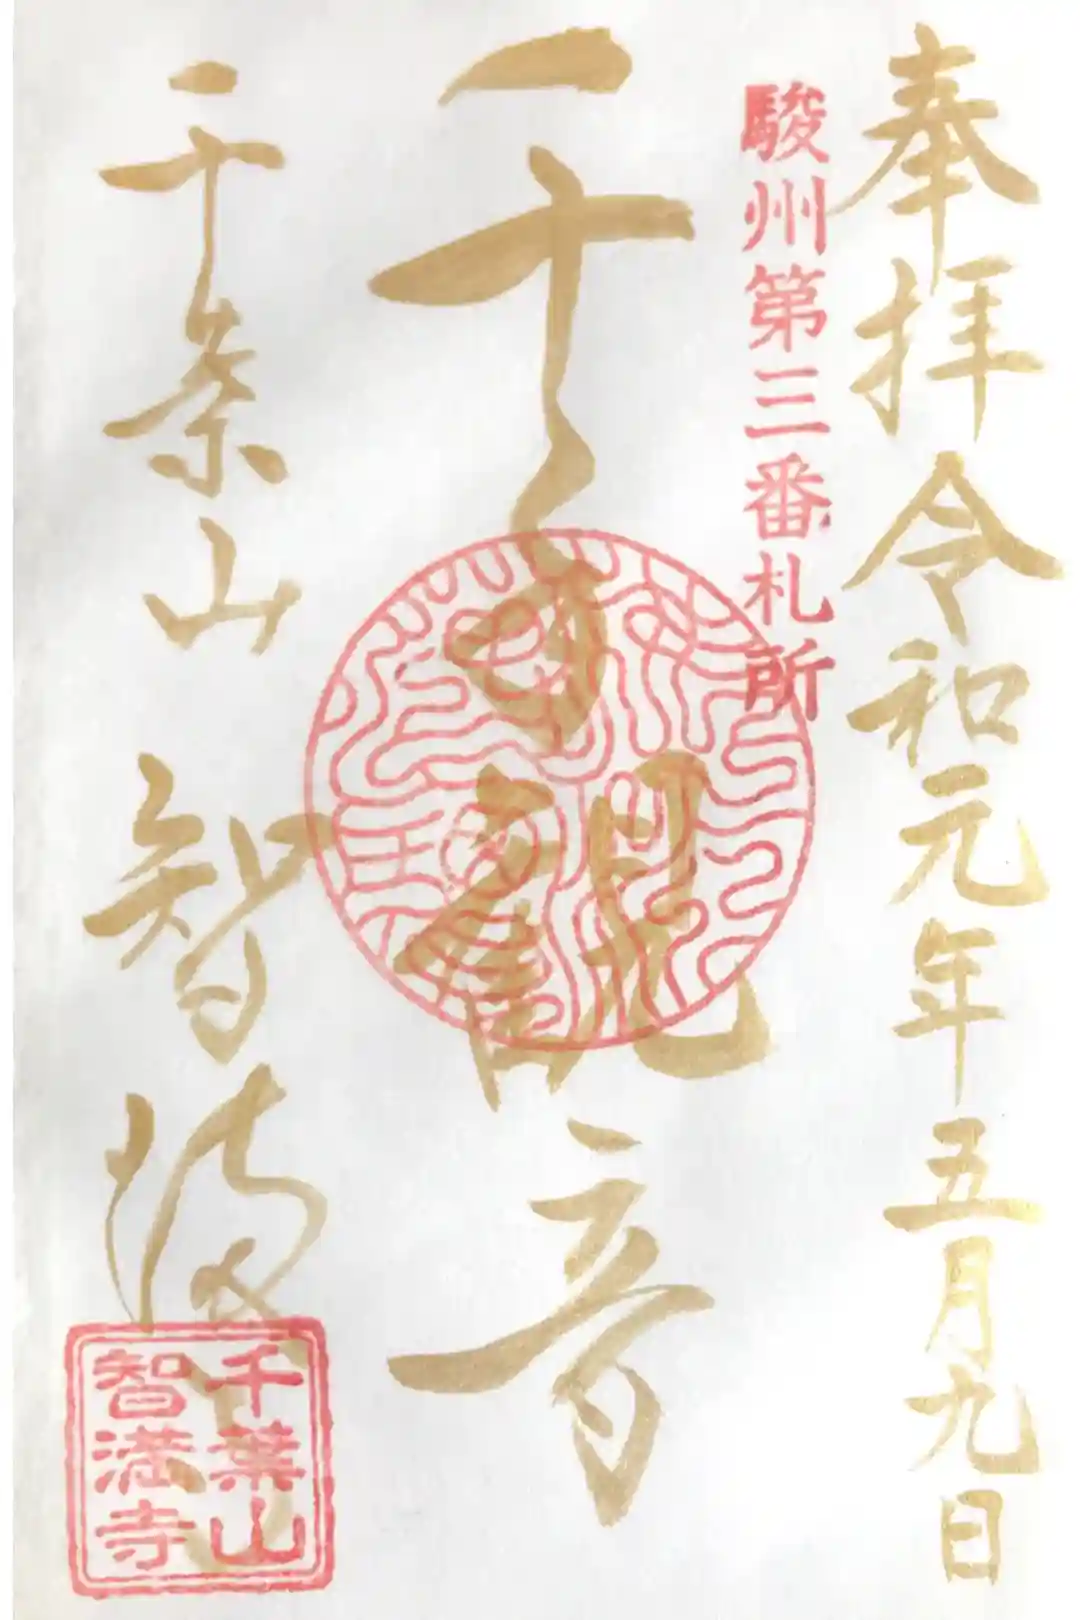 奉拝令和元年五月九日
駿州第三番札所
千手観音
千葉山智満寺
千葉山
智満寺